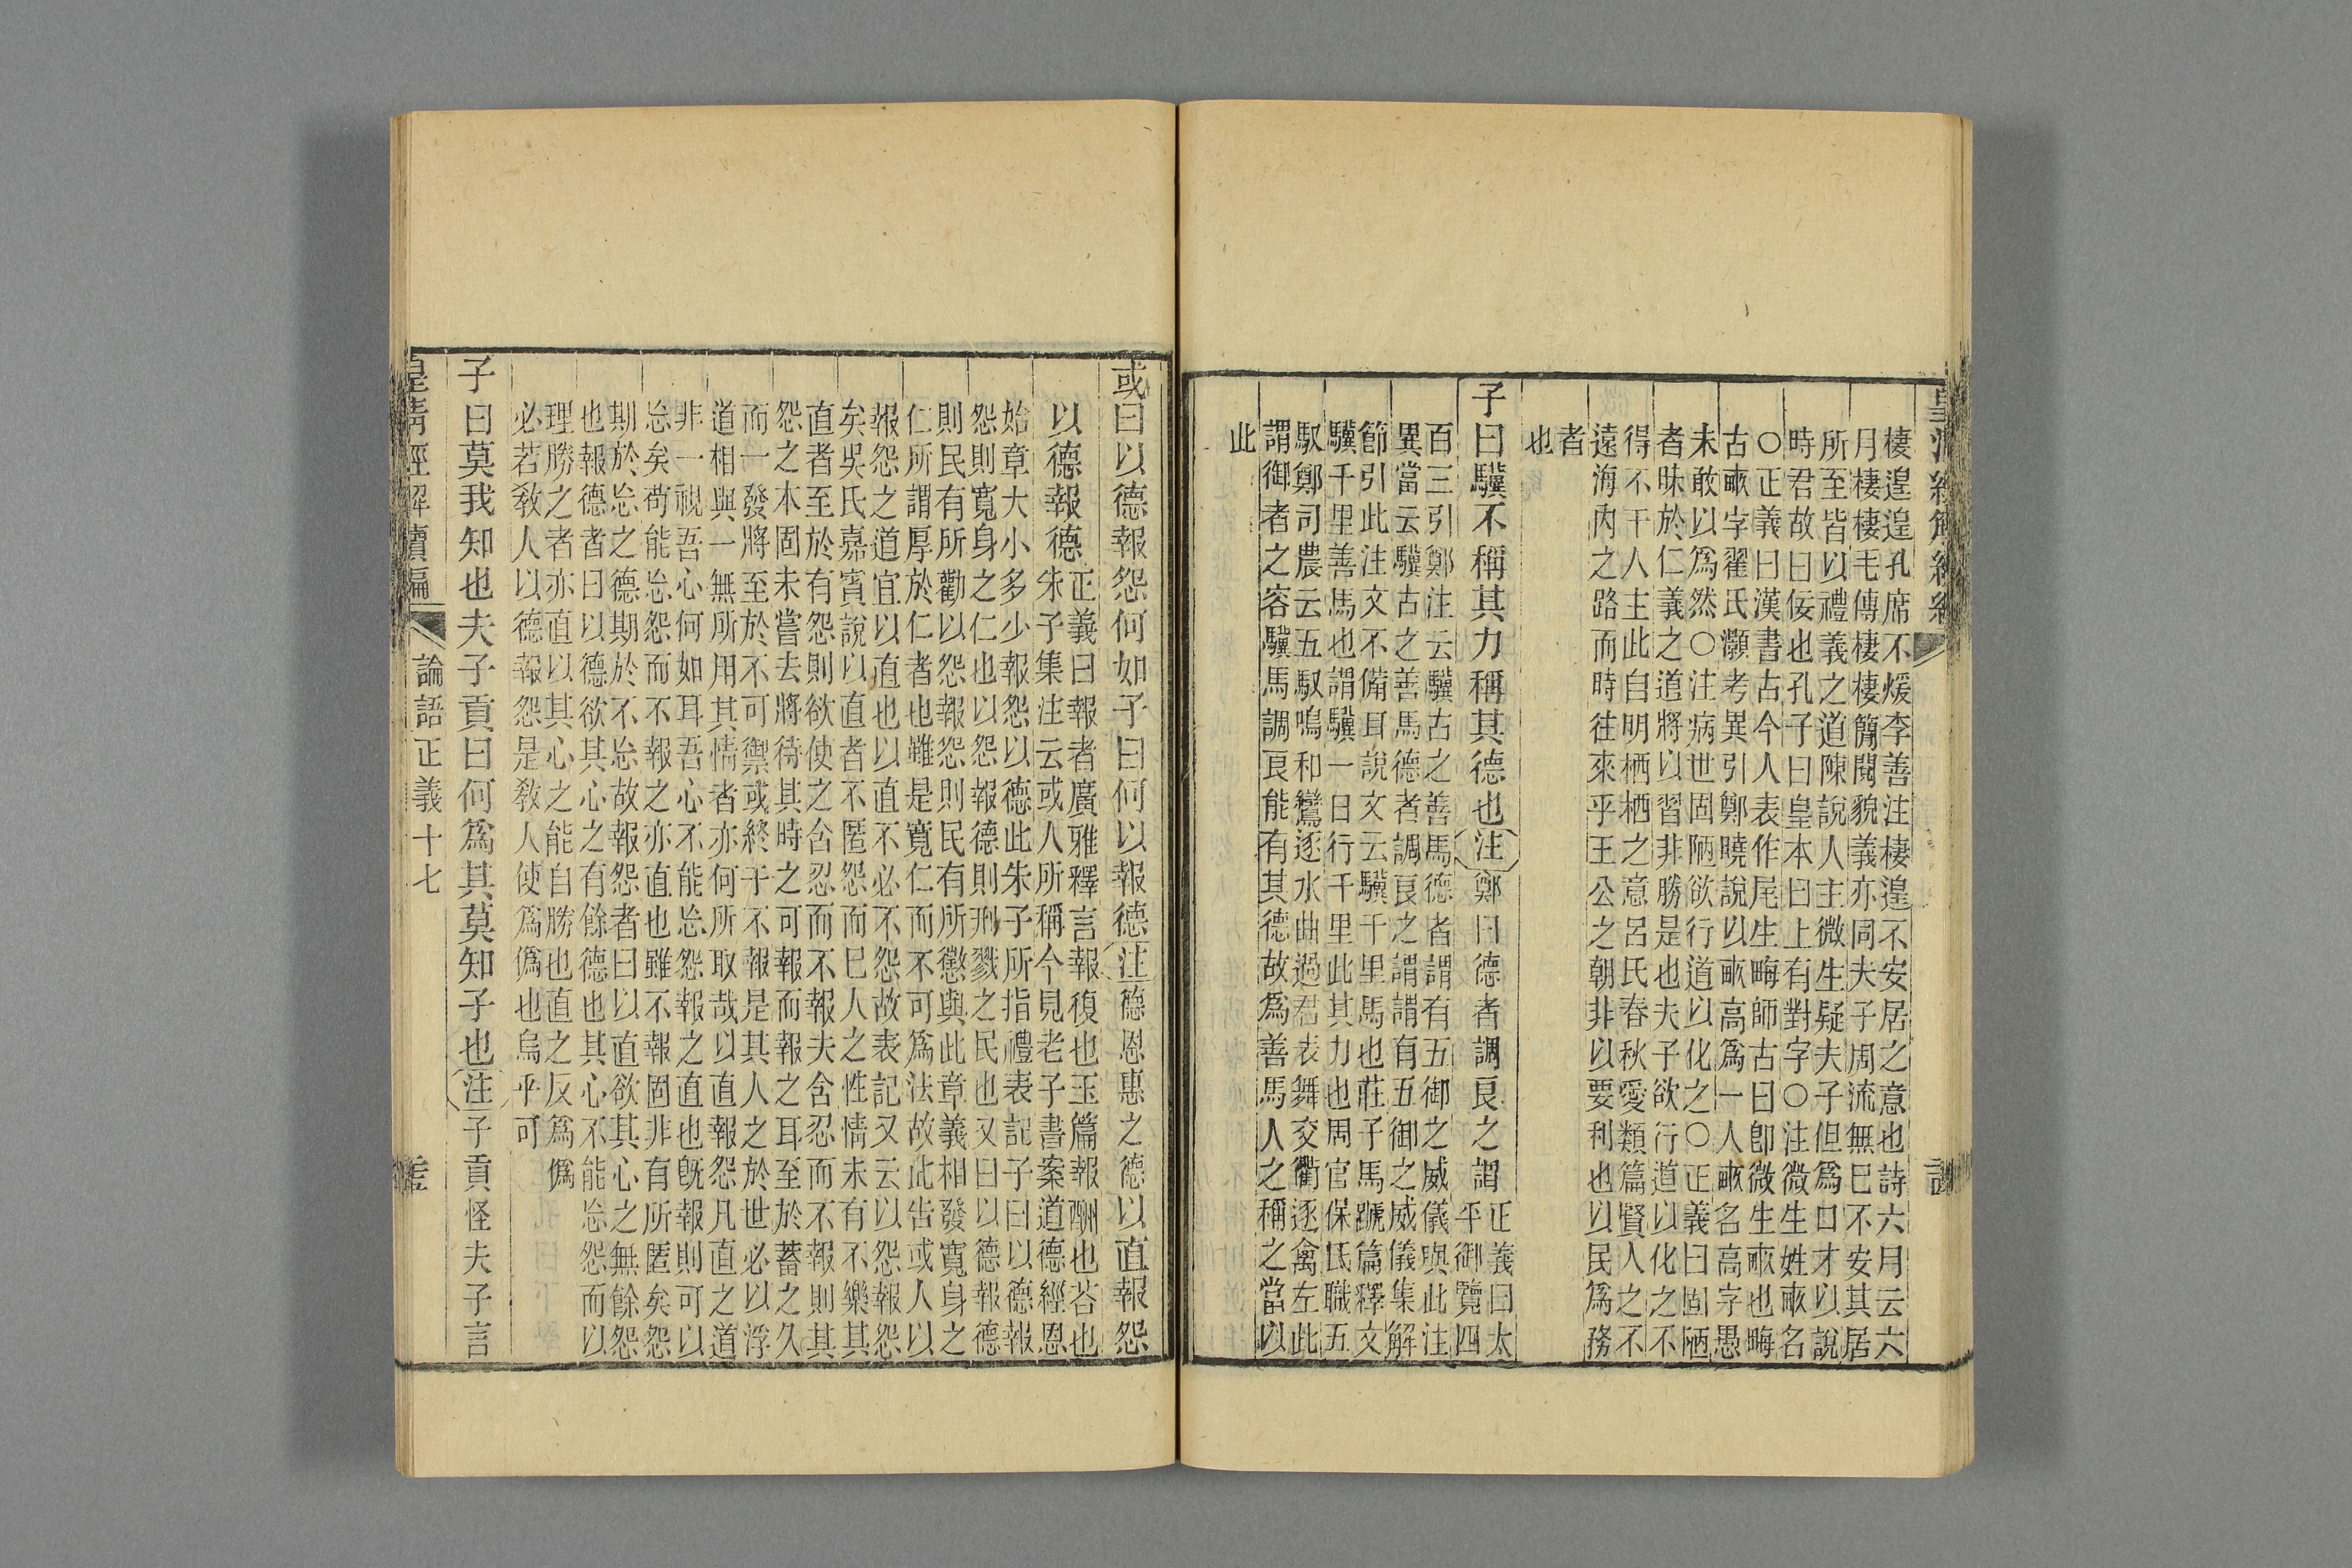 棲遑遑孔席不煖李善注棲遑不安居之意也詩六月云六
月棲棲毛傳棲棲簡閱貌義亦同夫子周流無已不安其居
所至皆以禮義之道陳說人主微生疑夫子但爲口才以說
時君故曰佞也孔子曰皇本曰上有對字○注微生姓畝名
○正義曰漢書古今人表作尾生畮師古曰卽微生畝也畮
古畝字翟氏灝考異引鄭曉說以畝高爲一人畝名高字愚
未敢以爲然○注病世固陋欲行道以化之○正義曰固陋
者昧於仁義之道將以習非勝是也夫子欲行道以化之不
得不干人主此自明栖栖之意呂氏春秋愛類篇賢人之不
遠海內之路而時往來乎王公之朝非以要利也以民爲務
者
也
子曰驥不稱其力稱其德也注鄭曰德者調良之謂正義曰太
平御覽四
百三引鄭注云驥古之善馬德者謂有五御之威儀與此注
異當云驥古之善馬德者調良之謂謂有五御之威儀集解
節引此注文不備耳說文云驥千里馬也莊子馬蹏篇釋文
驥千里善馬也謂驥一日行千里此其力也周官保氏職五
馭鄭司農云五馭鳴和鸞逐水曲過君表舞交衢逐禽左此
謂御者之容驥馬調良能有其德故爲善馬人之稱之當以
此
或曰以德報怨何如子曰何以報德注德恩惠之德以直報怨
以德報德正義曰報者廣雅釋言報復也玉篇報酬也荅也
朱子集注云或人所稱今見老子書案道德經恩
始章大小多少報怨以德此朱子所指禮表記子曰以德報
怨則寬身之仁也以怨報德則刑戮之民也又曰以德報德
則民有所勸以怨報怨則民有所懲與此章義相發寬身之
仁所謂厚於仁者也雖是寬仁而不可爲法故此告或人以
報怨之道宜以直也以直不必不怨故表記又云以怨報怨
矣吳氏嘉賓說以直者不匿怨而已人之性情未有不樂其
直者至於有怨則欲使之含忍而不報夫含忍而不報則其
怨之本固未嘗去將待其時之可報而報之耳至於蓄之久
而一發將至於不可禦或終于不報是其人之於世必以浮
道相與一無所用其情者亦何所取哉以直報怨凡直之道
非一視吾心何如耳吾心不能忘怨報之直也既報則可以
忘矣苟能忘怨而不報之亦直也雖不報固非有所匿矣怨
期於忘之德期於不忘故報怨者曰以直欲其心之無餘怨
也報德者曰以德欲其心之有餘德也其心不能忘怨而以
理勝之者亦直以其心之能自勝也直之反爲僞
必若敎人以德報怨是敎人使爲僞也烏乎可
子曰莫我知也夫子貢曰何爲其莫知子也注子貢怪夫子言
皇清經解續編 論語正義十七